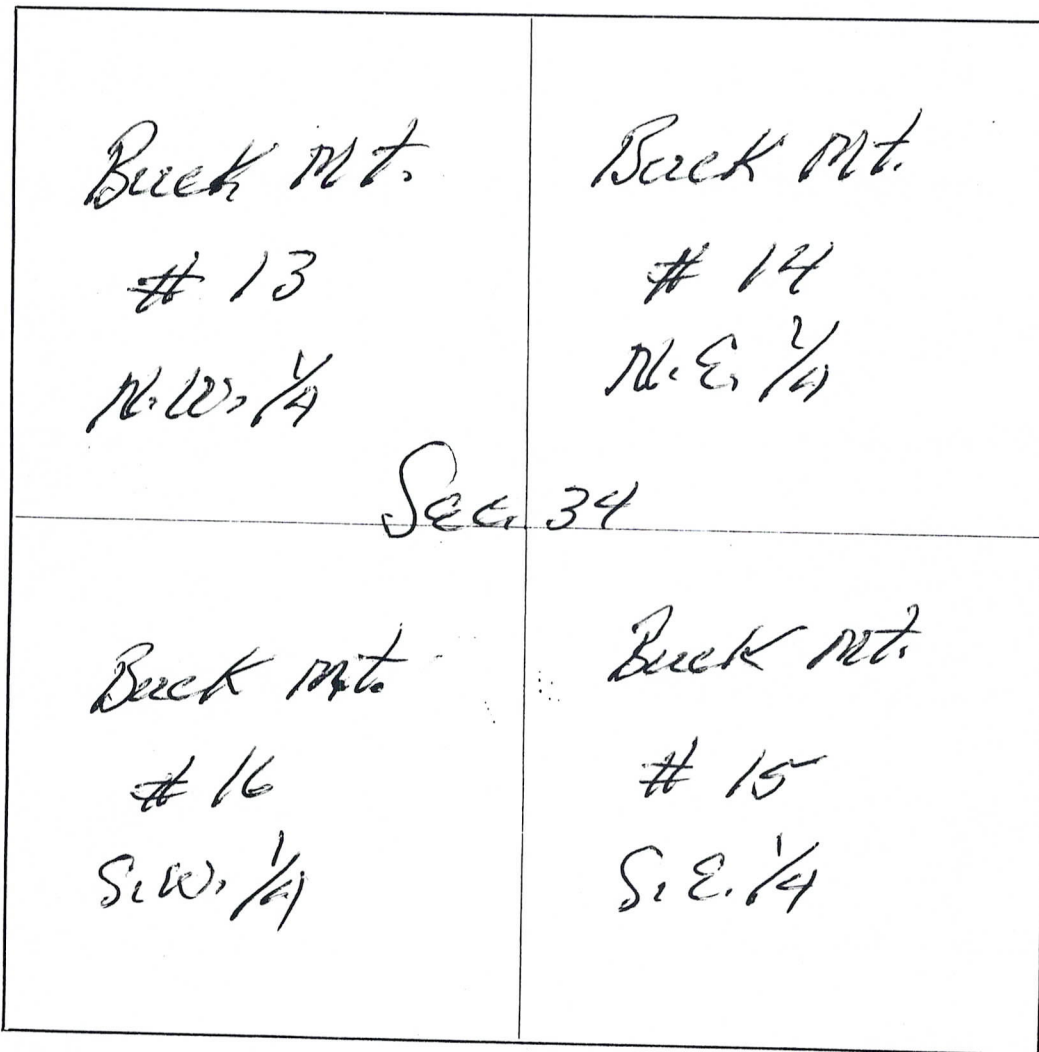 Buck Mt.
# 13
N.W. 1/4
Buck Mt.
# 14
N.E. 1/4
Sec. 34
Buck Mt.
# 16
S.W. 1/4
Buck Mt.
# 15
S.E. 1/4